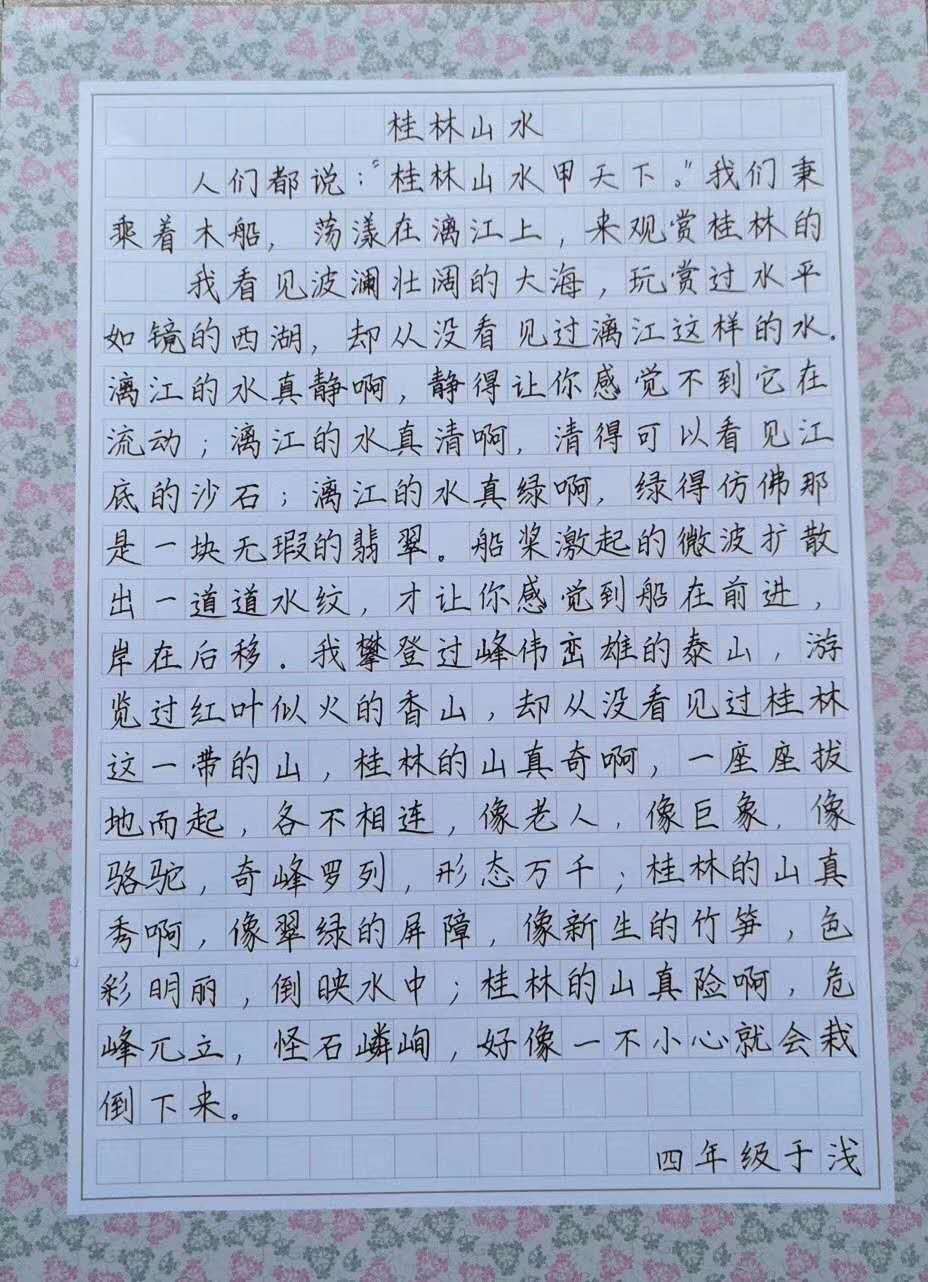 桂林山水
人们都说:“桂林山水甲天下。”我们秉
乘着木船，荡漾在漓江上，来观赏桂林的
我看见波澜壮阔的大海，玩赏过水平
如镜的西湖，却从没看见过漓江这样的水.
漓江的水真静啊，静得让你感觉不到它在
流动；漓江的水真清啊，清得可以看见江
底的沙石；漓江的水真绿啊，绿得仿佛那
是一块无瑕的翡翠。船桨激起的微波扩散
出一道道水纹，才让你感觉到船在前进，
岸在后移.我攀登过峰伟峦雄的泰山，游
览过红叶似火的香山，却从没看见过桂林
这一带的山，桂林的山真奇啊，一座座拔
地而起，各不相连，像老人，像巨象，像
骆驼，奇峰罗列，形态万千；桂林的山真
秀啊，像翠绿的屏障，像新生的竹笋，色
彩明丽，倒映水中；桂林的山真险啊，危
峰兀立，怪石嶙峋，好像一不小心就会栽
倒下来。
四年级于浅